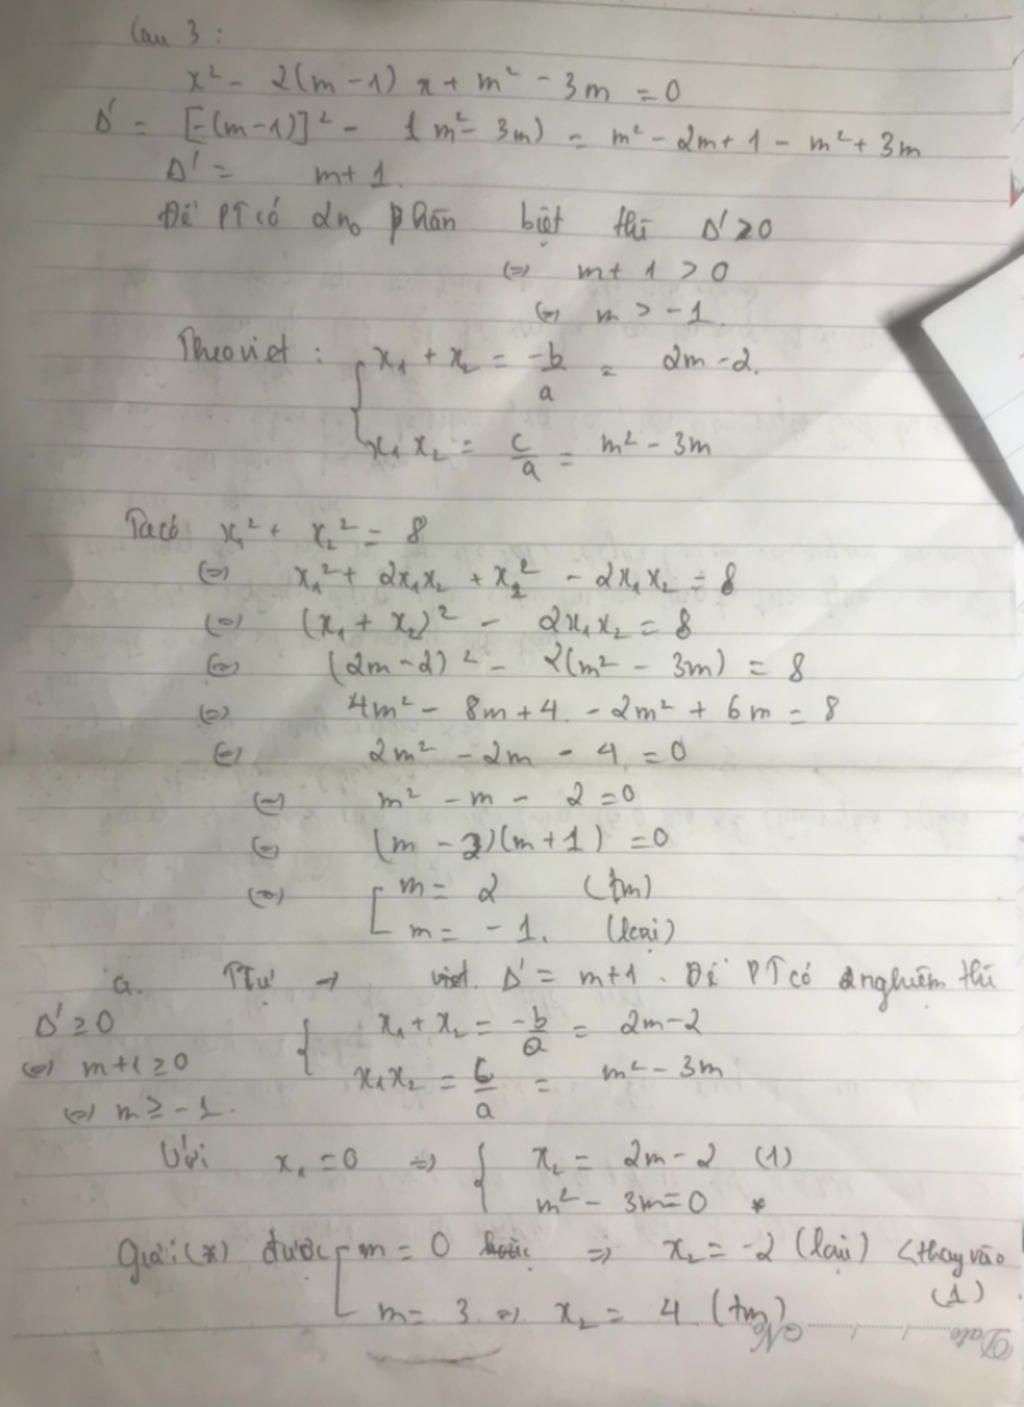 Câu 3 :
x² - 2(m-1) x + m² - 3m = 0
Δ' = [-(m-1)]² - 1 m² - 3m) = m² - 2m + 1 - m² + 3m
Δ' = m + 1.
Để PT có 2no phân biệt thì Δ' ≥ 0
⇔ m + 1 > 0
⇔ m > -1.
Theo viet : { x₁ + x₂ = -b/a = 2m - 2.
x₁ x₂ = c/a = m² - 3m
Ta có x₁² + x₂² = 8
⇔ x₁² + 2x₁x₂ + x₂² - 2x₁x₂ = 8
⇔ (x₁ + x₂)² - 2x₁x₂ = 8
⇔ (2m-2)² - 2(m² - 3m) = 8
⇔ 4m² - 8m + 4. - 2m² + 6m = 8
⇔ 2m² - 2m - 4 = 0
⇔ m² - m - 2 = 0
⇔ (m - 2)(m + 1) = 0
⇔ [ m = 2 (tm)
m = -1. (loại)
a. TTự → viet. Δ' = m+1. Để PT có 2nghiệm thì
Δ' ≥ 0 { x₁ + x₂ = -b/a = 2m-2
⇔ m+1 ≥ 0 x₁x₂ = c/a = m² - 3m
⇔ m ≥ -1.
Với x₁ = 0 ⇒ { x₂ = 2m - 2 (1)
m² - 3m = 0 *
Giải (*) được [ m = 0 ⇒ x₂ = -2 (loại) <thay vào
(1)
m = 3 ⇒ x₂ = 4. (tm)
Date No